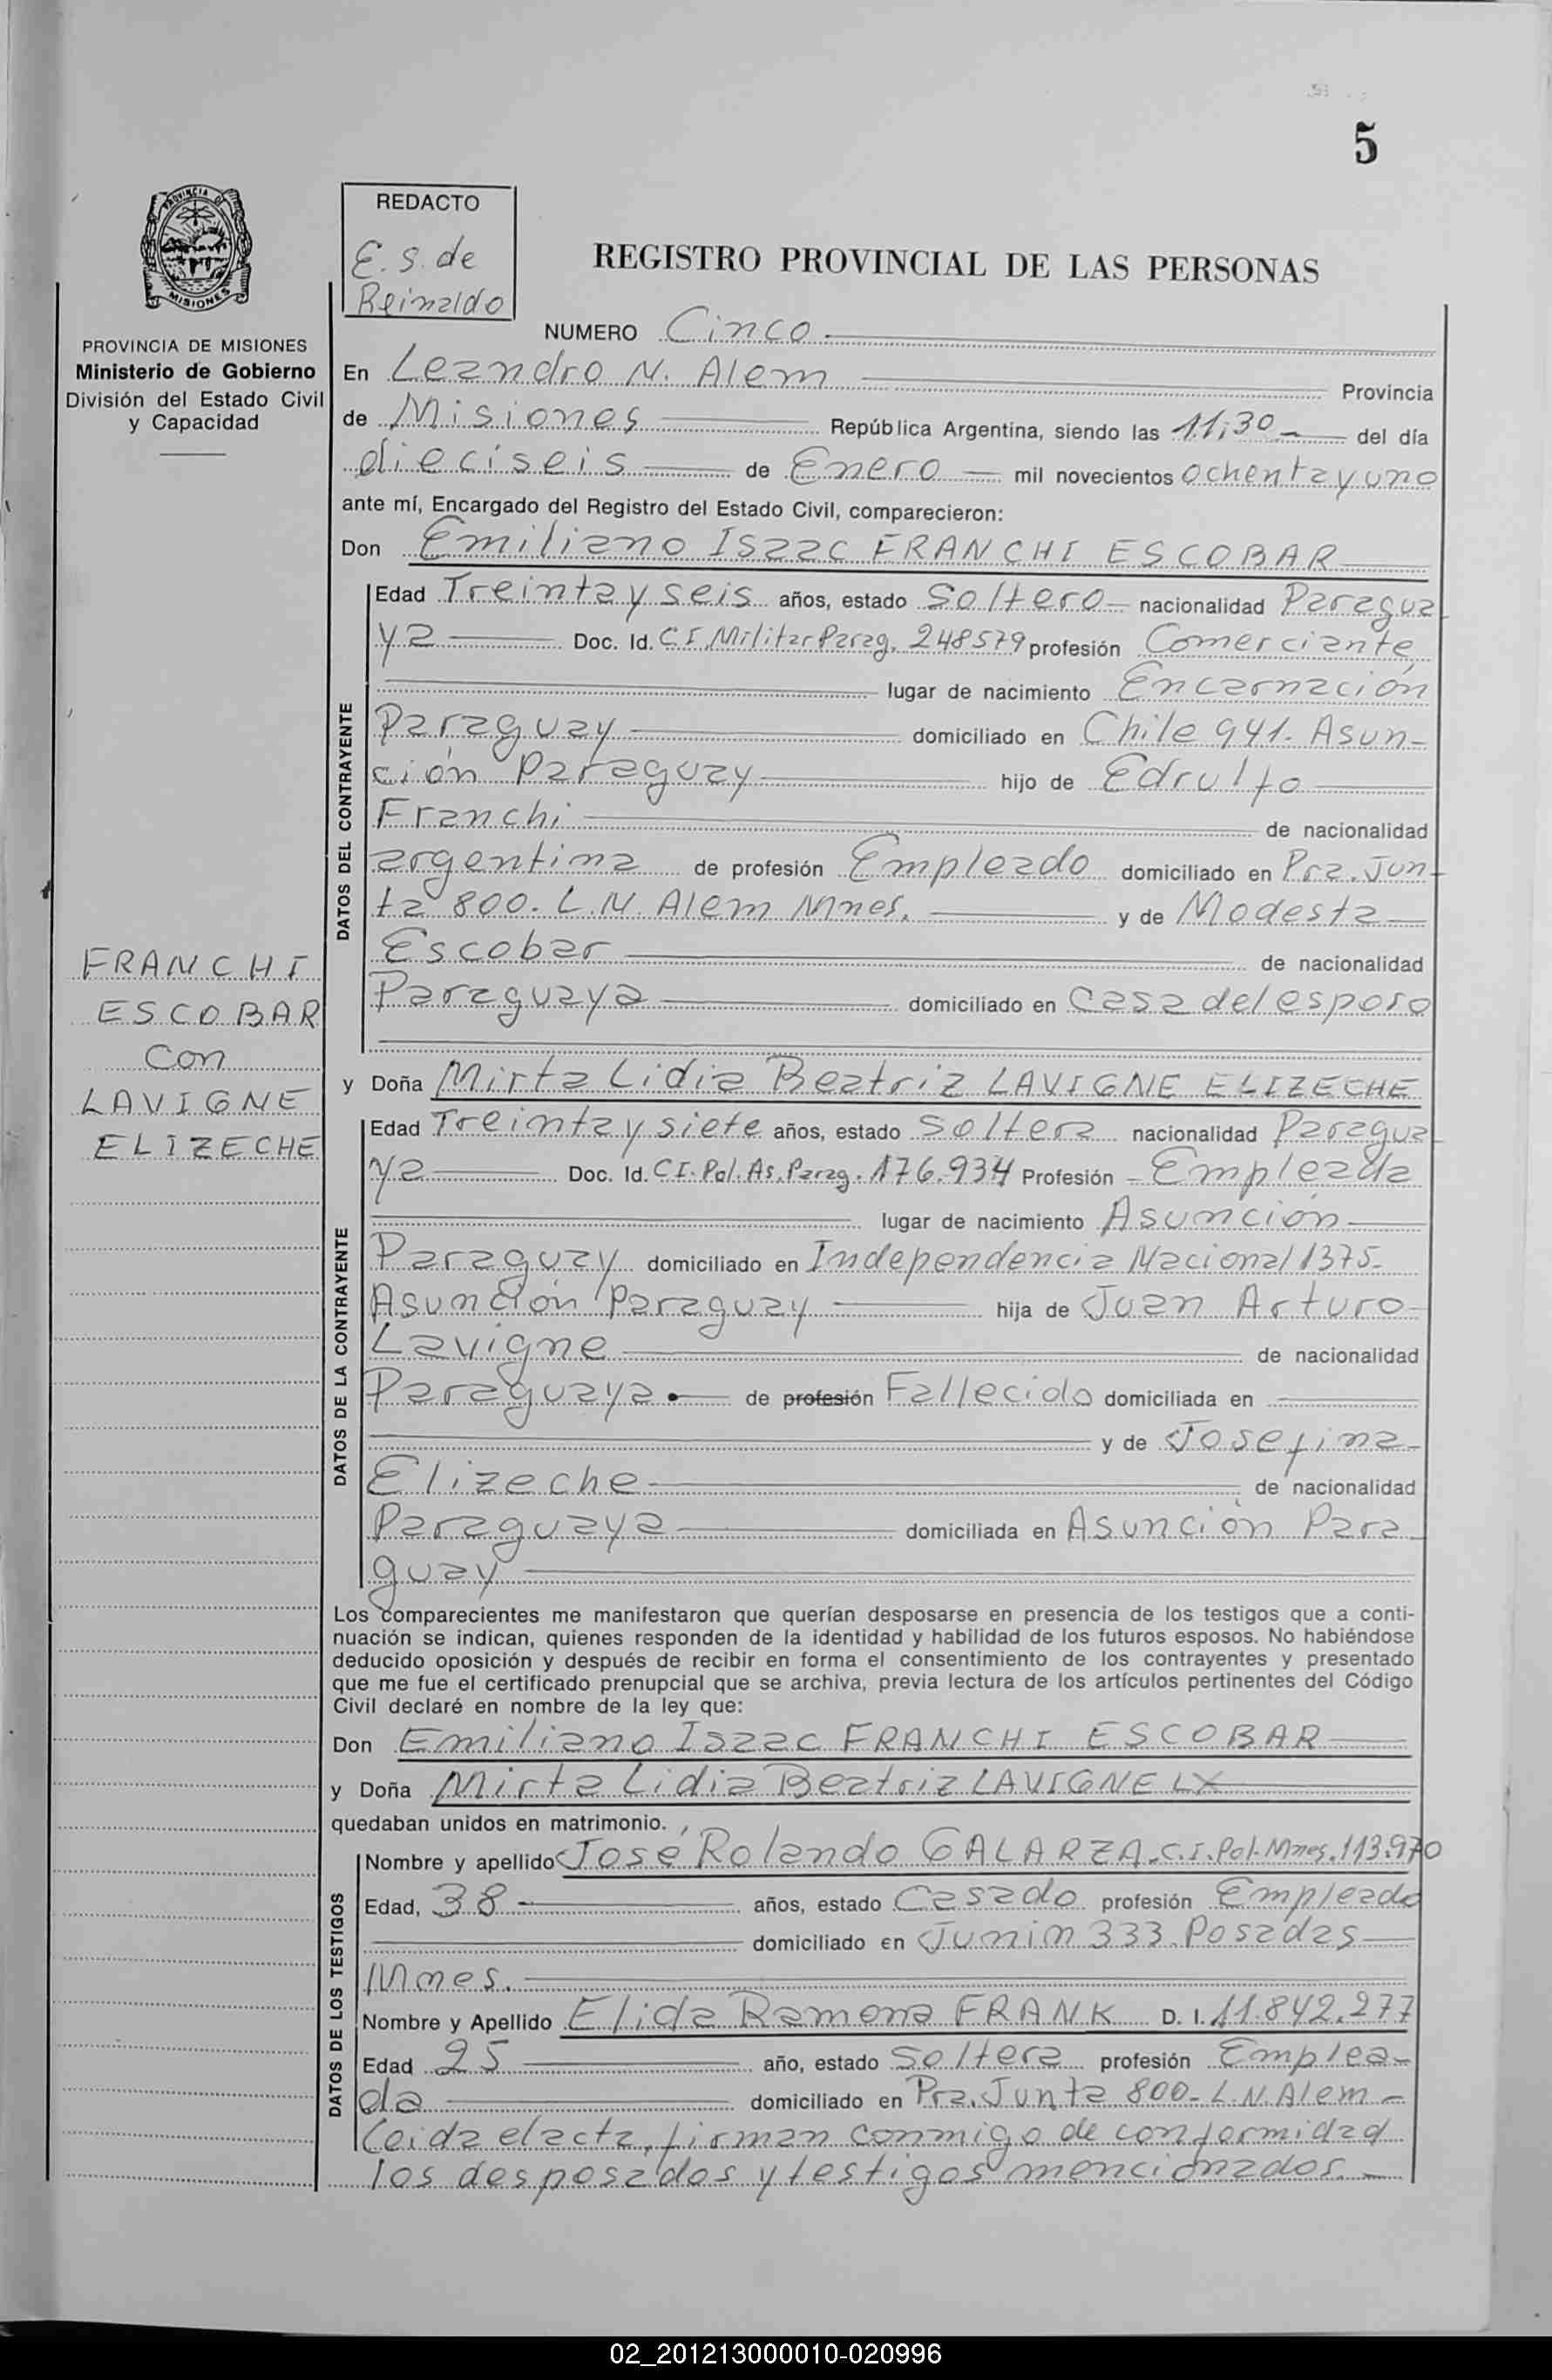 5
PROVINCIA DE
MISIONES
PROVINCIA DE MISIONES
Ministerio de Gobierno
División del Estado Civil
y Capacidad
FRANCHI
ESCOBAR
Con
LAVIGNE
ELIZECHE
REDACTO
E. S. de
Reinaldo
REGISTRO PROVINCIAL DE LAS PERSONAS
NUMERO Cinco
En Leandro N. Alem Provincia
de Misiones República Argentina, siendo las 11,30 del día
dieciseis de Enero mil novecientos ochenta y uno
ante mí, Encargado del Registro del Estado Civil, comparecieron:
Don Emiliano Isaac FRANCHI ESCOBAR
DATOS DEL CONTRAYENTE
Edad Treinta y seis años, estado Soltero nacionalidad Paragua
ya Doc. Id. C I Militar Parag. 248579 profesión Comerciante
lugar de nacimiento Encarnación
Paraguay domiciliado en Chile 941. Asun-
ción Paraguay hijo de Edrulfo
Franchi de nacionalidad
argentina de profesión Empleado domiciliado en Pra. Jun-
ta 800. L. N. Alem Mnes. y de Modesta
Escobar de nacionalidad
Paraguaya domiciliado en Casa del esposo
y Doña Mirta Lidia Beatriz LAVIGNE ELIZECHE
DATOS DE LA CONTRAYENTE
Edad Treinta y siete años, estado Soltera nacionalidad Paragua-
ya Doc. Id. C I. Pol. As. Parag. 176.934 Profesión Empleada
lugar de nacimiento Asunción
Paraguay domiciliado en Independencia Nacional 1375-
Asunción Paraguay hija de Juan Arturo
Lavigne de nacionalidad
Paraguaya. de profesión Fallecido domiciliada en
y de Josefina
Elizeche de nacionalidad
Paraguaya domiciliada en Asunción Para
guay
Los comparecientes me manifestaron que querían desposarse en presencia de los testigos que a conti-
nuación se indican, quienes responden de la identidad y habilidad de los futuros esposos. No habiéndose
deducido oposición y después de recibir en forma el consentimiento de los contrayentes y presentado
que me fue el certificado prenupcial que se archiva, previa lectura de los artículos pertinentes del Código
Civil declaré en nombre de la ley que:
Don Emiliano Isaac FRANCHI ESCOBAR
y Doña Mirta Lidia Beatriz LAVIGNE
quedaban unidos en matrimonio.
DATOS DE LOS TESTIGOS
Nombre y apellido José Rolando GALARZA. C. I. Pol. Mnes. 113.970
Edad, 38 años, estado Casado profesión Empleado
domiciliado en Junin 333. Posadas
Mnes.
Nombre y Apellido Elida Ramona FRANK D. I. 11.842.277
Edad 25 año, estado Soltera profesión Emplea-
da domiciliado en Pra. Junta 800- L. N. Alem
Leida el acta, firman conmigo de conformidad
los desposados y testigos mencionados.
02_201213000010-020996